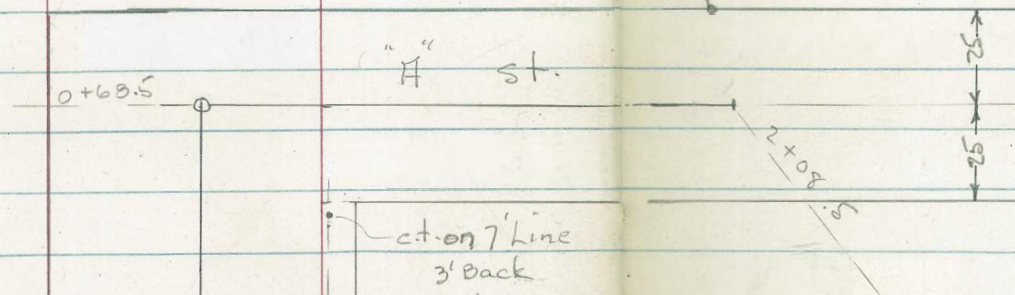 "A" St.
25
0+68.5
2+08.5
25
c.t. on 7' Line
3' Back